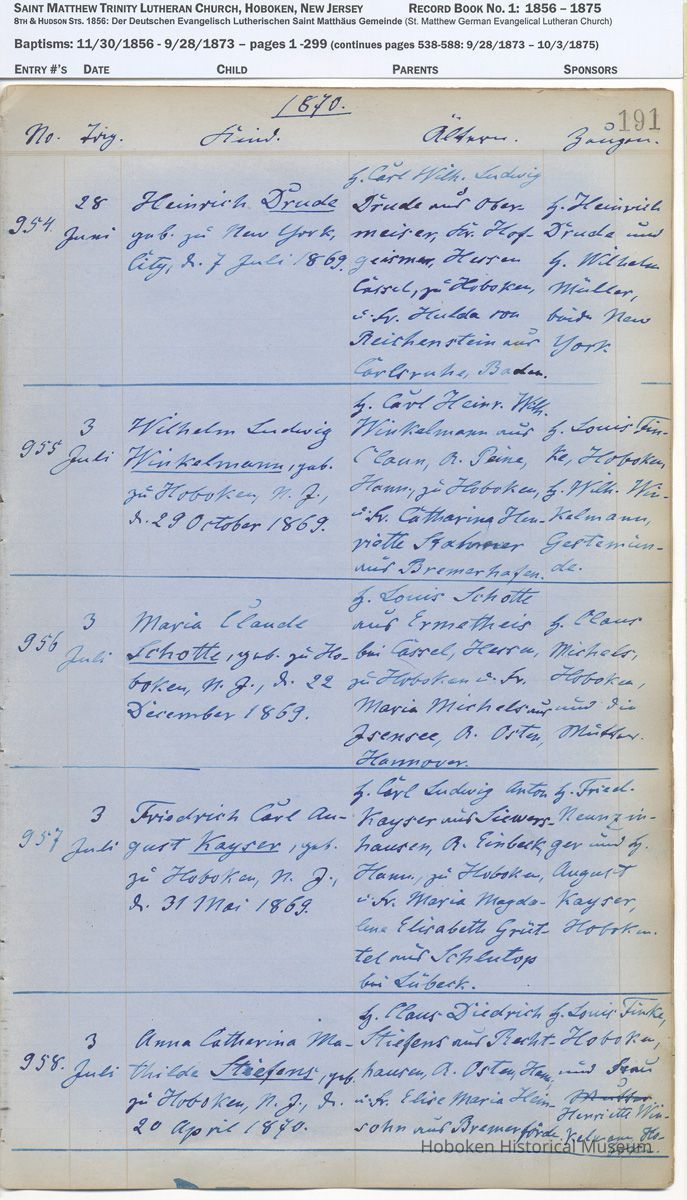 SAINT MATTHEW TRINITY LUTHERAN CHURCH, HOBOKEN, NEW JERSEY RECORD BOOK NO. 1: 1856 – 1875
8TH & HUDSON STS. 1856: Der Deutschen Evangelisch Lutherischen Saint Matthäus Gemeinde (St. Matthew German Evangelical Lutheran Church)
Baptisms: 11/30/1856 - 9/28/1873 – pages 1 -299 (continues pages 538-588: 9/28/1873 – 10/3/1875)
ENTRY #'S DATE CHILD PARENTS SPONSORS
1870.
191
No. Kind. Ältern. Zeugen.
954.
28
Juni
Heinrich Drude
geb. zu New York,
City, d. 7 Juli 1869.
H. Carl Wilh. Ludwig
Drude aus Ober-
meiser, Kr. Hof-
geismar, Hessen
Cassel, zu Hoboken,
u. Fr. Hulda von
Reichenstein aus
Carlsruhe, Baden.
H. Heinrich
Drude und
H. Wilhelm
Müller,
beide New
York
955
3
Juli
Wilhelm Ludwig
Winkelmann, geb.
zu Hoboken, N. J.,
d. 29 October 1869.
H. Carl Heinr. Wilh.
Winkelmann aus
A. Peine,
Hann., zu Hoboken,
u. Fr. Catharina Hen-
riette
aus Bremerhafen.
H. Louis Fin-
ke, Hoboken,
H. Wilh. Win-
kelmann,
Gestemün-
de.
956
3
Juli
Maria Claude
Schotte, geb. zu Ho-
boken, N. J., d. 22
December 1869.
H. Louis Schotte
aus Ermetheis
bei Cassel, Hessen,
zu Hoboken u. Fr.
Maria Michels aus
Isensee, A. Osten,
Hannover.
H. Claus
Michels,
Hoboken,
und die
Mutter.
957
3
Juli
Friedrich Carl Au-
gust Kayser, geb.
zu Hoboken, N. J.,
d. 31 Mai 1869.
H. Carl Ludwig Anton
Kayser aus Sievers-
hausen, A. Einbeck,
Hann., zu Hoboken,
u. Fr. Maria Magda-
lena Elisabeth Grüt-
tel aus Schlutop
bei Lübeck.
H. Fried.
Nennzin-
ger und H.
August
Kayser,
Hoboken.
958.
3
Juli
Anna Catharina Ma-
thilde Steffens, geb.
zu Hoboken, N. J., d.
20 April 1870.
H. Claus Diedrich
Steffens aus Hecht-
hausen, A. Osten, Han.,
u. Fr. Elise Maria Hein-
sohn aus Bremerförde.
H. Louis Finke,
Hoboken,
und Frau
Mutter
Henriette Win-
kelmann, Ho-
boken.
Hoboken Historical Museum